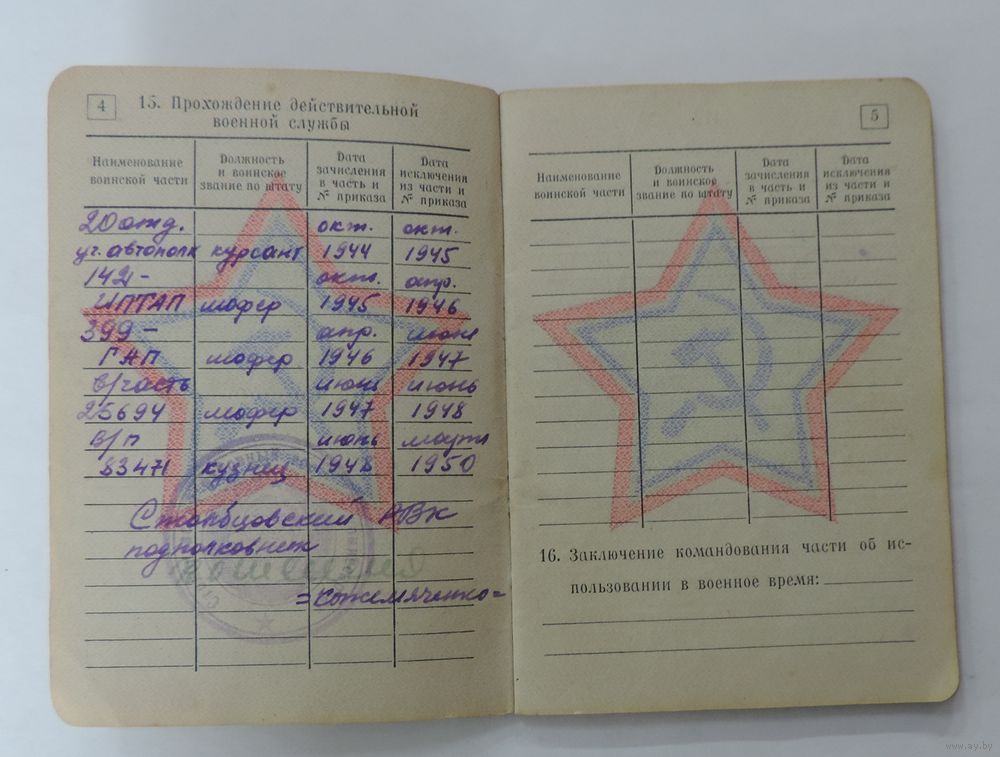 4
15. Прохождение действительной
военной службы
Наименование воинской части | Должность и воинское звание по штату | Дата зачисления в часть и № приказа | Дата исключения из части и № приказа
20 отд. окт. окт.
уч. автополк курсант 1944 1945
142- окт. апр.
ИПТАП шофер 1945 1946
399- апр. июнь
ГАП шофер 1946 1947
в/часть июнь июнь
25694 шофер 1947 1948
в/п июнь март
83471 кузнец 1948 1950
Столбцовский РВК
подполковник
=Кожемяченко=
5
Наименование воинской части | Должность и воинское звание по штату | Дата зачисления в часть и № приказа | Дата исключения из части и № приказа
16. Заключение командования части об ис-
пользовании в военное время:
www.ay.by